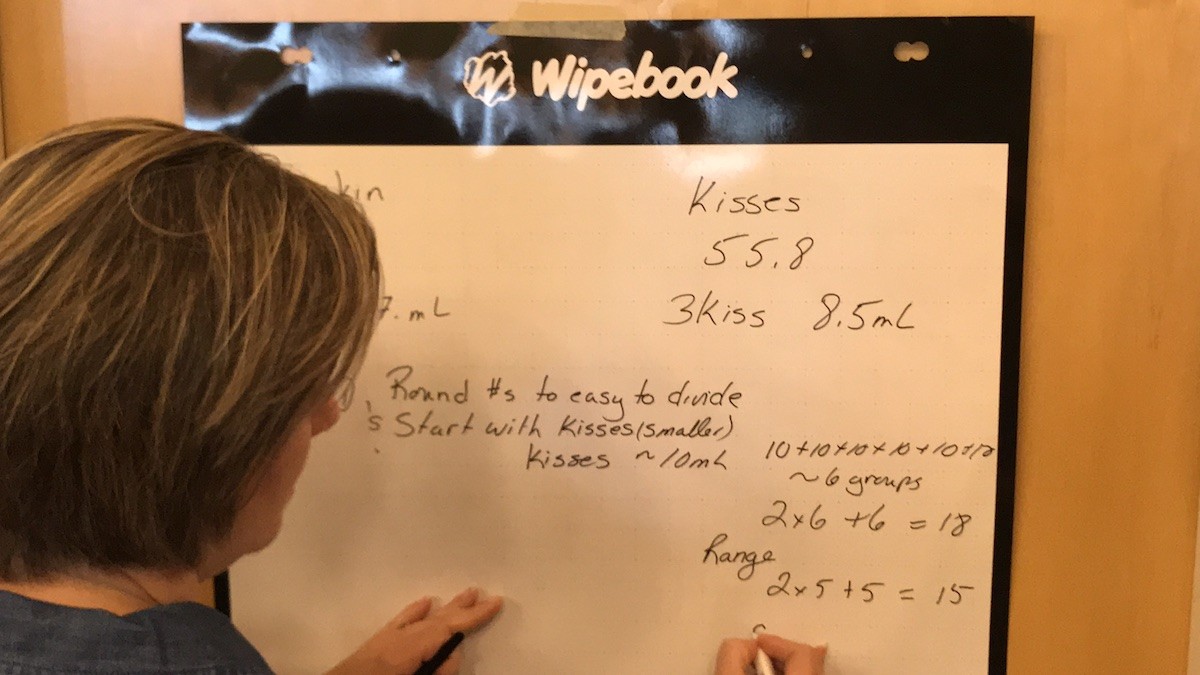 Wipebook
Kisses
55.8
7. mL
3 Kiss 8.5mL
Round #s to easy to divide
Start with Kisses (smaller)
Kisses ~ 10mL
10+10+10+10+10+10
~ 6 groups
2x6 +6 = 18
Range
2x5 +5 = 15